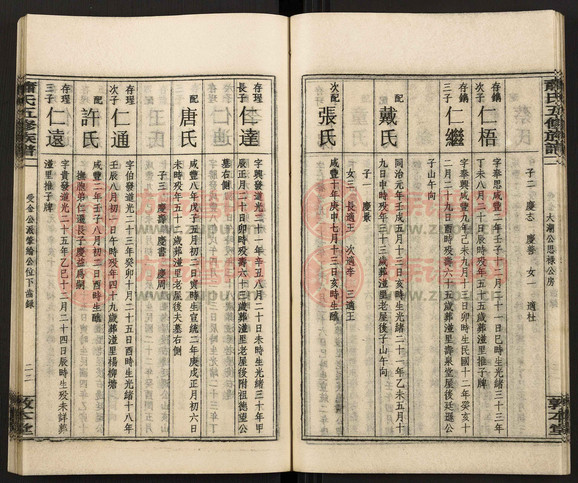 蕭氏五修族譜
大潮公思祿公房
子二 慶志 慶善 女一 適杜
存鎬次子 仁梧
字寧思咸豐二年壬子十二月二十一日巳時生光緒三十三年
丁未八月二十日辰時歿年五十六歲葬漨里推子牌
存鎬三子 仁繼
字寧興咸豐九年己未十月初三日亥時生民國十二年癸亥十
二月二十九日酉時歿壽六十五歲葬漨里壽泉堂屋後廷選公
子山午向
配 戴氏
同治元年壬戌五月十三日亥時生光緒二十一年乙未五月十
九日申時歿年三十三歲葬漨里老屋後子山午向
子一 慶景
女三 長適王 次適李 三適王
次配 張氏
咸豐十年庚申七月十三日亥時生醮
敦本堂
存理長子 仁達
字興發道光二十一年辛丑八月二十日未時生光緒三十年甲
辰正月二十日卯時歿壽六十三歲葬漨里老屋後附祖德堃公
墓右側
配 唐氏
咸豐八年戊午五月初二日寅時生宣統二年庚戌正月初六日
未時歿年五十二歲葬漨里老屋後大墓右側
子三 慶壽 慶書 慶周
存理次子 仁通
字伯發道光二十三年癸卯十月二十二日酉時生光緒十八年
壬辰八月初一日午時歿年四十九歲葬漨里楊柳塘
配 許氏
咸豐二年壬子八月初二日酉時生醮
撫胞弟仁遠長子慶益爲嗣
存理三子 仁遠
字貴發道光二十五年乙巳十二月二十四日辰時生歿未詳葬
漨里推子牌
蕭氏五修族譜
受全公派肇綸公位下齒錄
二二
敦本堂